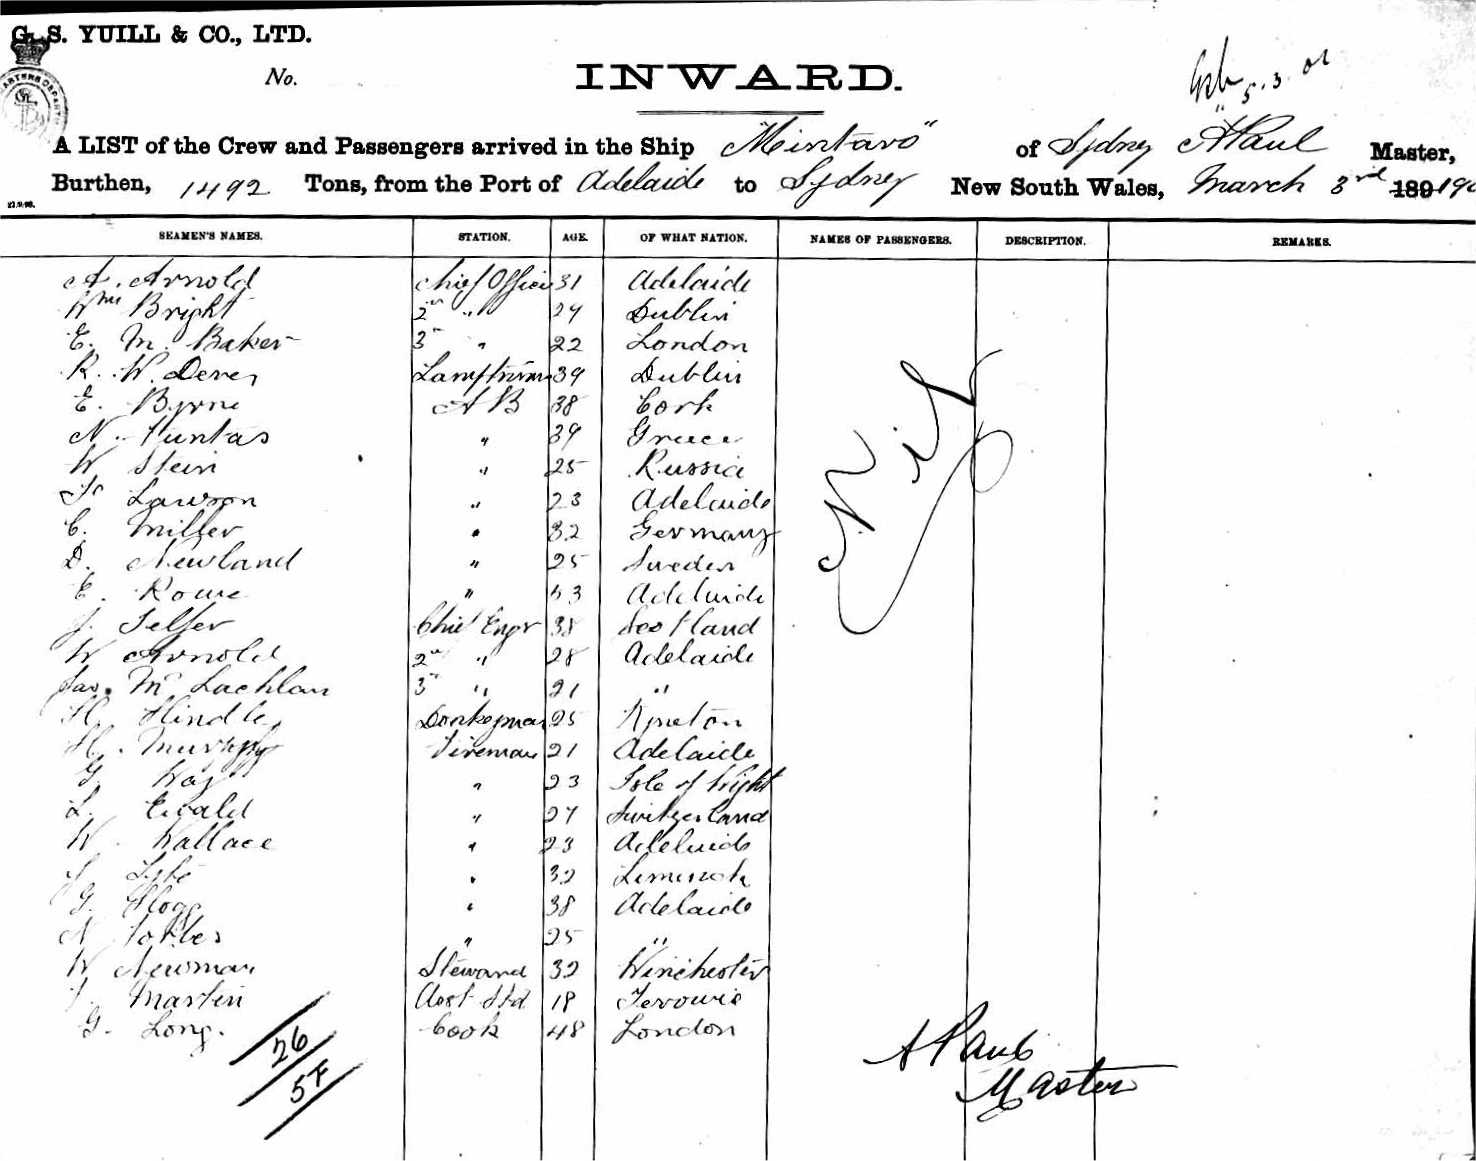 G. S. YUILL & CO., LTD.
No.
INWARD.
5.3.01
A LIST of the Crew and Passengers arrived in the Ship "Mintaro" of Sydney A Paul Master,
Burthen, 1492 Tons, from the Port of Adelaide to Sydney New South Wales, March 3rd 189 190
SEAMEN'S NAMES. STATION. AGE. OF WHAT NATION. NAMES OF PASSENGERS. DESCRIPTION. REMARKS.
A. Arnold Chief Officer 31 Adelaide
Wm Bright 2nd " 29 Dublin
E. M. Baker 3rd " 22 London
R. W. Lamptrimr 39 Dublin
E. Byrne A B 38 Cork
N. Funtas " 39 Greece
W Stein " 25 Russia
Lawson " 23 Adelaide
C. Miller " 32 Germany
D. Newland " 25 Sweden
E. Rowe " 53 Adelaide
J. Telfer Chief Engr 38 Scotland
W Arnold 2nd " 28 Adelaide
Jas. McLachlan 3rd " 21 "
H. Hindle Donkeyman 25 Kyneton
H. Murphy Fireman 21 Adelaide
G. Way " 23 Isle of Wight
L. Ewald " 27 Switzerland
W. Wallace " 23 Adelaide
" 32 Limerick
G. " 38 Adelaide
N Forbes " 25 "
W Newman Steward 32 Winchester
Martin Asst Std 18 Terowie
G. Long. Cook 48 London
Nil
26
5F
A Paul
Master